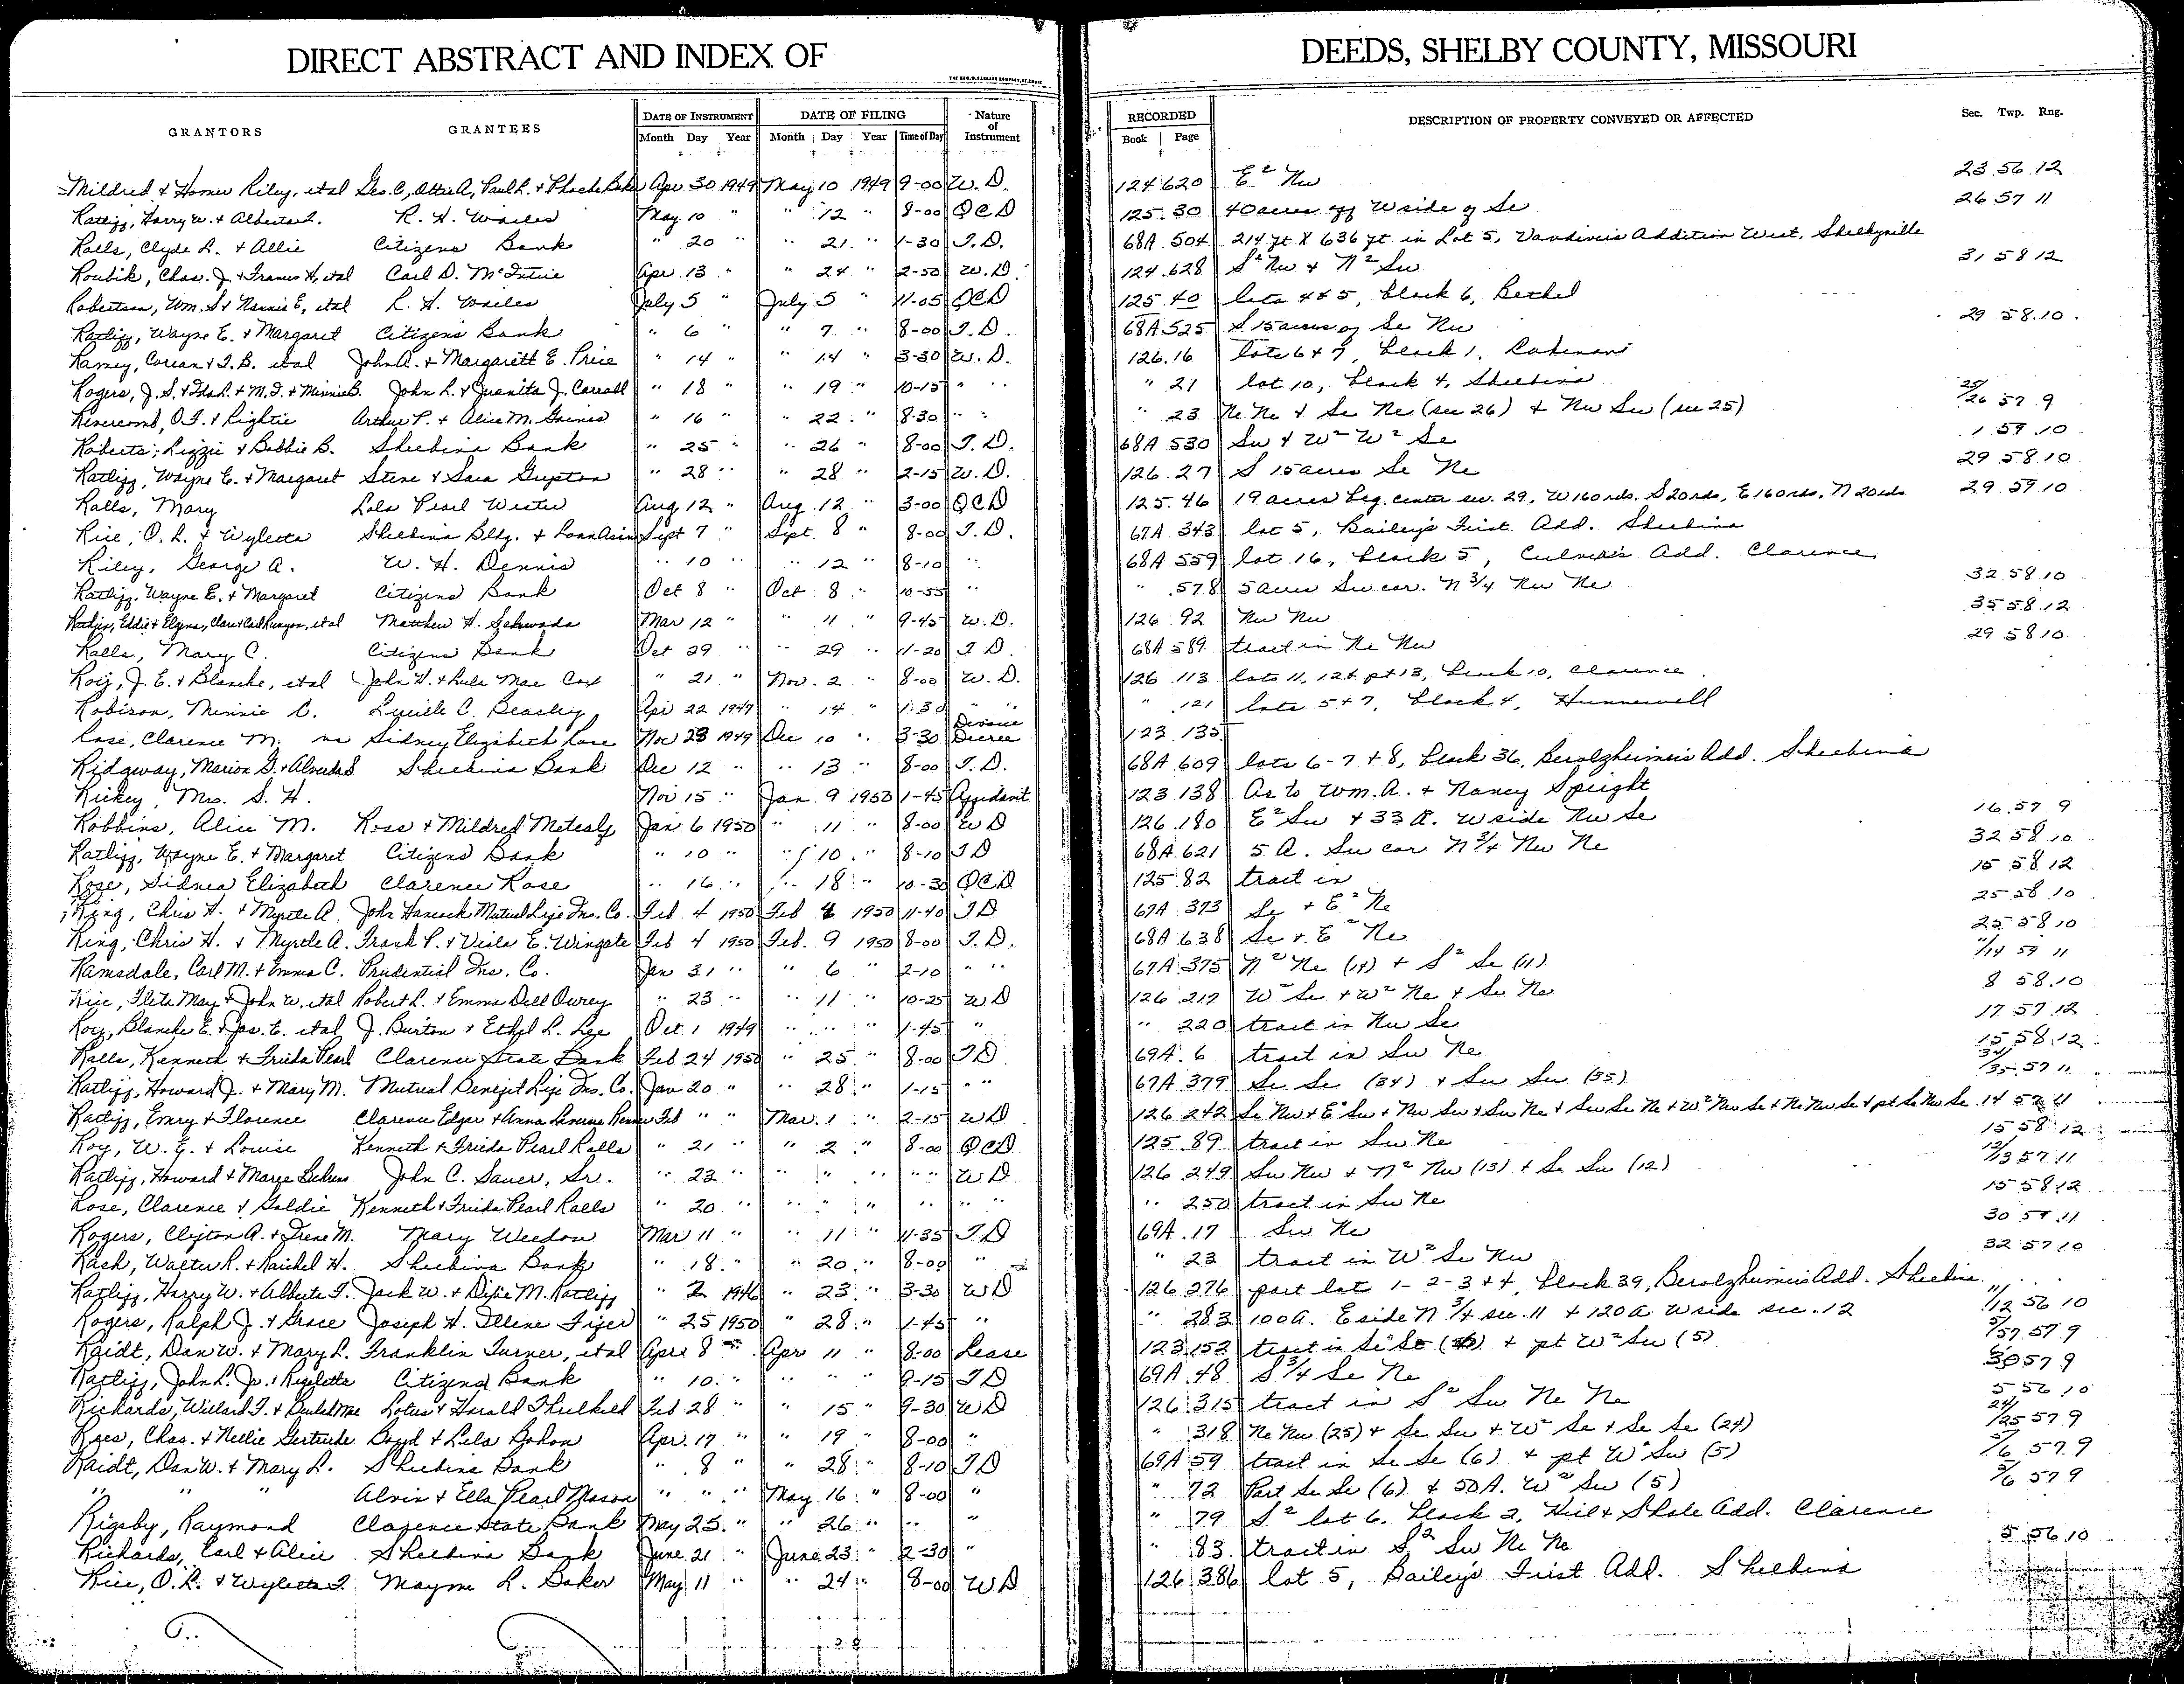 DIRECT ABSTRACT AND INDEX OF DEEDS, SHELBY COUNTY, MISSOURI
GRANTORS GRANTEES DATE OF INSTRUMENT DATE OF FILING Nature of Instrument RECORDED DESCRIPTION OF PROPERTY CONVEYED OR AFFECTED Sec. Twp. Rng.
Month Day Year Month Day Year Time of Day Book Page
Mildred & Homer Riley, etal Geo. C, Ottie A, Paul R. & Phoebe Baker Apr 30 1949 May 10 1949 9-00 W.D. 124 620 E² Nw 23 56 12
Ratliff, Harry W. & Alberta F. R. H. Wailes May 10 " " 12 " 8-00 QCD 125 30 40 acres off W side of Se 26 57 11
Ralls, Clyde L. & Allie Citizens Bank " 20 " " 21 " 1-30 T.D. 68A 504 214 ft X 636 ft in Lot 5, Vandiver's Addition West, Shelbyville
Roubik, Chas. J. & Frances H, etal Carl D. McIntire Apr 13 " " 24 " 2-50 W.D. 124 628 S² Nw & N² Sw 31 58 12
Robertson, Wm. S & Nannie E, etal R. H. Wailes July 5 " July 5 " 11-05 QCD 125 40 lots 4 & 5, block 6, Bethel
Ratliff, Wayne E. & Margaret Citizens Bank " 6 " " 7 " 8-00 T.D. 68A 525 S 15 acres of Se Nw 29 58 10
Ramey, Corean & T.B. etal John A. & Margarett E. Price " 14 " " 14 " 3-30 W.D. 126 16 lots 6 & 7, block 1,
Rogers, J. S. & Ida L. & M. F. & Minnie B. John L. & Juanita J. Carroll " 18 " " 19 " 10-15 " " " 21 lot 10, block 4, Shelbina
Revercomb, O.F. & Rightie Arthur P. & Alice M. Gaines " 16 " " 22 " 8-30 " " " 23 Ne Ne & Se Ne (sec 26) & Nw Sw (sec 25) 25/26 57 9
Roberts, Lizzie & Bobbie B. Shelbina Bank " 25 " " 26 " 8-00 T.D. 68A 530 Sw & W² W² Se 1 57 10
Ratliff, Wayne E. & Margaret Steve & Sara Gupton " 28 " " 28 " 2-15 W.D. 126 27 S 15 acres Se Ne 29 58 10
Ralls, Mary Lola Pearl Wester Aug 12 " Aug. 12 " 3-00 QCD 125 46 19 acres beg. center sec. 29, W 160 rds. S 20 rds, E 160 rds, N 20 rds 29 59 10
Rice, O. L. & Wyletta Shelbina Bldg. & Loan Assn Sept 7 " Sept. 8 " 8-00 T.D. 67A 343 lot 5, Bailey's First Add. Shelbina
Riley, George A. W. H. Dennis " 10 " " 12 " 8-10 " 68A 559 lot 16, block 5, Culver's Add. Clarence
Ratliff, Wayne E. & Margaret Citizens Bank Oct 8 " Oct 8 " 10-55 " " 578 5 acres Sw cor. N 3/4 Nw Ne 32 58 10
Eddie & Elgena, Clara & Carl Runyon, etal Matthew H. Schwada Mar 12 " " 11 " 9-45 W.D. 126 92 Nw Nw 35 58 12
Ralls, Mary C. Citizens Bank Oct 29 " " 29 " 11-20 T D. 68A 589 tract in Ne Nw 29 58 10
Roy, J. E. & Blanche, etal John H. & Lula Mae Cox " 21 " Nov. 2 " 8-00 W. D. 126 113 lots 11, 12 & pt 13, block 10, Clarence
Robison, Minnie C. Lucille C. Beasley Apr 22 1947 " 14 " 1-30 " " " 121 lots 5 & 7, block 4, Hunnewell
Rose, Clarence M. vs Sidney Elizabeth Rose Nov 23 1949 Dec 10 " 3-30 Divorce Decree 123 135
Ridgway, Marion G. & Alveda S Shelbina Bank Dec 12 " " 13 " 8-00 T.D. 68A 609 lots 6-7 & 8, block 36, Berolzheimer's Add. Shelbina
Rickey, Mrs. S. H. Nov 15 " Jan 9 1950 1-45 Affidavit 123 138 As to Wm. A. & Nancy Speight
Robbins, Alice M. Ross & Mildred Metcalf Jan. 6 1950 " 11 " 8-00 W D 126 180 E² Sw & 33 A. W side Nw Se 16 57 9
Ratliff, Wayne E. & Margaret Citizens Bank " 10 " " 10 " 8-10 T D 68A 621 5 A. Sw cor N 3/4 Nw Ne 32 58 10
Rose, Sidnea Elizabeth Clarence Rose " 16 " " 18 " 10-30 QCD 125 82 tract in 15 58 12
Ring, Chris H. & Myrtle A. John Hancock Mutual Life Ins. Co. Feb 4 1950 Feb 4 1950 11-40 T D 67A 373 Se & E² Ne 25 58 10
Ring, Chris H. & Myrtle A. Frank P. & Viola E. Wingate Feb 4 1950 Feb. 9 1950 8-00 T.D. 68A 638 Se & E² Ne 25 58 10
Ramsdale, Carl M. & Emma C. Prudential Ins. Co. Jan 31 " " 6 " 2-10 " " 67A 375 N² Ne (14) & S² Se (11) 11/14 59 11
Rice, Fleta May & John W. etal Robert L. & Emma Dell Owrey " 23 " " 11 " 10-25 W D 126 217 W² Se & W² Ne & Se Ne 8 58 10
Roy, Blanche E. & Jas. E. etal J. Burton & Ethyl L. Lee Oct 1 1949 " " " 1-45 " " 220 tract in Nw Se 17 57 12
Ralls, Kenneth & Frieda Pearl Clarence State Bank Feb 24 1950 " 25 " 8-00 T D 69A 6 tract in Sw Ne 15 58 12
Ratliff, Howard J. & Mary M. Mutual Benefit Life Ins. Co. Jan 20 " " 28 " 1-15 " " 67A 379 Se Se (34) & Sw Sw (35) 34/35 57 11
Ratliff, Emery & Florence Clarence Edgar & Anna Laverne Feb " " Mar. 1 " 2-15 W D 126 242 Se Nw & E² Sw & Nw Sw & Sw Ne & Sw Se Ne & W² Nw Se & Ne Nw Se & pt Se Nw Se 14 57 11
Roy, W. E. & Louise Kenneth & Frieda Pearl Ralls " 21 " " 2 " 8-00 QCD 125 89 tract in Sw Ne 15 58 12
Ratliff, Howard & Marye John C. Sauer, Sr. " 23 " " " " " " W D 126 249 Sw Nw & N² Nw (13) & Se Sw (12) 12/13 57 11
Rose, Clarence & Goldie Kenneth & Frieda Pearl Ralls " 20 " " " " " " " " " 250 tract in Sw Ne 15 58 12
Rogers, Clifton A. & Irene M. Mary Weedon Mar 11 " " 11 " 11-35 T D 69A 17 Sw Ne 30 57 11
Rash, Walter R. & Raichel H. Shelbina Bank " 18 " " 20 " 8-00 " " 23 tract in W² Se Nw 32 57 10
Ratliff, Harry W. & Alberta F. Jack W. & Dixie M. Ratliff " 2 1946 " 23 " 3-30 W D 126 276 part lots 1-2-3 & 4, block 39, Berolzheimer's Add. Shelbina
Rogers, Ralph J. & Grace Joseph H. Illene Figer " 25 1950 " 28 " 1-45 " " 283 100 A. E side N 3/4 sec. 11 & 120 A W side sec. 12 11/12 56 10
Raidt, Dan W. & Mary L. Franklin Turner, etal April 8 " Apr 11 " 8-00 Lease 123 152 tract in Se Se (6) & pt W² Sw (5) 57 9
Ratliff, John L. Jr. & Rigoletta Citizens Bank " 10 " " " " 9-15 T D 69A 48 S 3/4 Se Ne 30 57 9
Richards, Willard F. & Beulah Mae Lotus & Harold Thulkeld Feb 28 " " 15 " 9-30 W D 126 315 tract in S² Sw Ne Ne 5 56 10
Rees, Chas. & Nellie Gertrude Boyd & Lela Bohon Apr. 17 " " 19 " 8-00 " " 318 Ne Nw (25) & Se Sw & W² Se & Se Se (24) 24/25 57 9
Raidt, Dan W. & Mary L. Shelbina Bank " 8 " " 28 " 8-10 T D 69A 59 tract in Se Se (6) & pt W² Sw (5) 5/6 57 9
" " " Alvin & Ella Pearl Mason " " " May 16 " 8-00 " " 72 Part Se Se (6) & 50 A. W² Sw (5) 5/6 57 9
Rigsby, Raymond Clarence State Bank May 25 " " 26 " " " " 79 S² lot 6, block 2, Hill & Shale Add. Clarence
Richards, Earl & Alice Shelbina Bank June 21 " June 23 " 2-30 " " 83 tract in S² Sw Ne Ne 5 56 10
Rice, O. L. & Wyletta F. Mayme L. Baker May 11 " " 24 " 8-00 W D 126 386 lot 5, Bailey's First Add. Shelbina